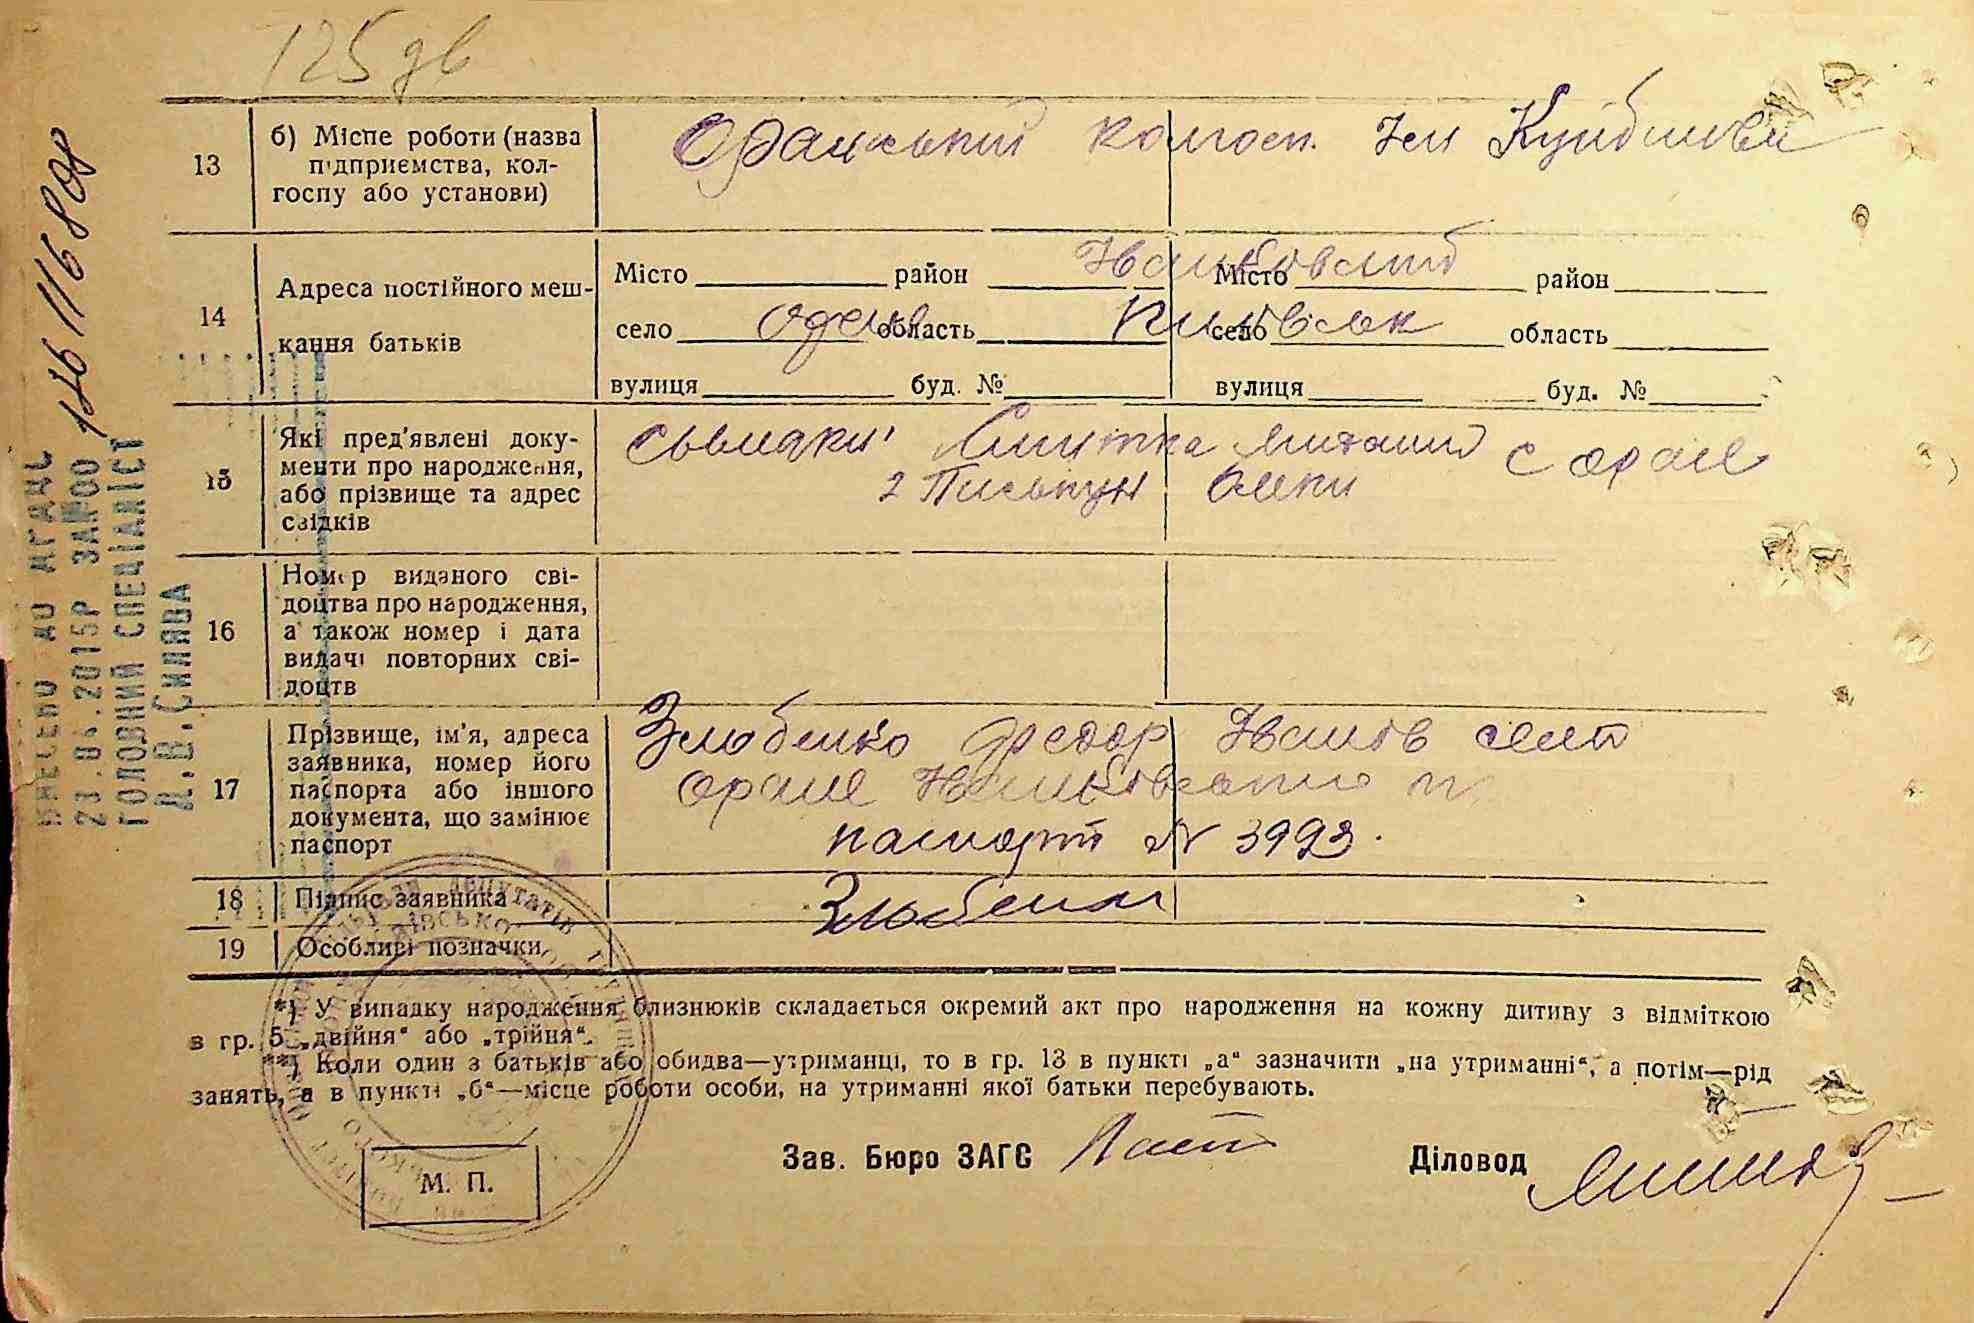 125 зв
13
б) Місце роботи (назва
підприємства, кол-
госпу або установи)
Оранський колгосп. Ім Куйбишева
14
Адреса постійного меш-
кання батьків
Місто район Іванківський Місто район
село Оране область Київськ село область
вулиця буд. № вулиця буд. №
15
Які пред'явлені доку-
менти про народження,
або прізвище та адрес
свідків
с Оране
2
16
Номер виданого сві-
доцтва про народження,
а також номер і дата
видачі повторних сві-
доцтв
17
Прізвище, ім'я, адреса
заявника, номер його
паспорта або іншого
документа, що замінює
паспорт
Злобенко Федор Іванов село
Оране Іванковського р.
паспорт N 3993.
18
Підпис заявника
Злобенко
19
Особливі позначки
*) У випадку народження близнюків складається окремий акт про народження на кожну дитину з відміткою
в гр. 5 „двійня“ або „трійня“.
**) Коли один з батьків або обидва—утриманці, то в гр. 13 в пункті „а“ зазначити „на утриманні“, а потім—рід
занять, а в пункті „б“—місце роботи особи, на утриманні якої батьки перебувають.
Зав. Бюро ЗАГС
Діловод
М. П.
ВНЕСЕНО ДО ДРАЦС
.2015Р ЗА №00 126116808
ГОЛОВНИЙ СПЕЦІАЛІСТ
Д.В.Силява